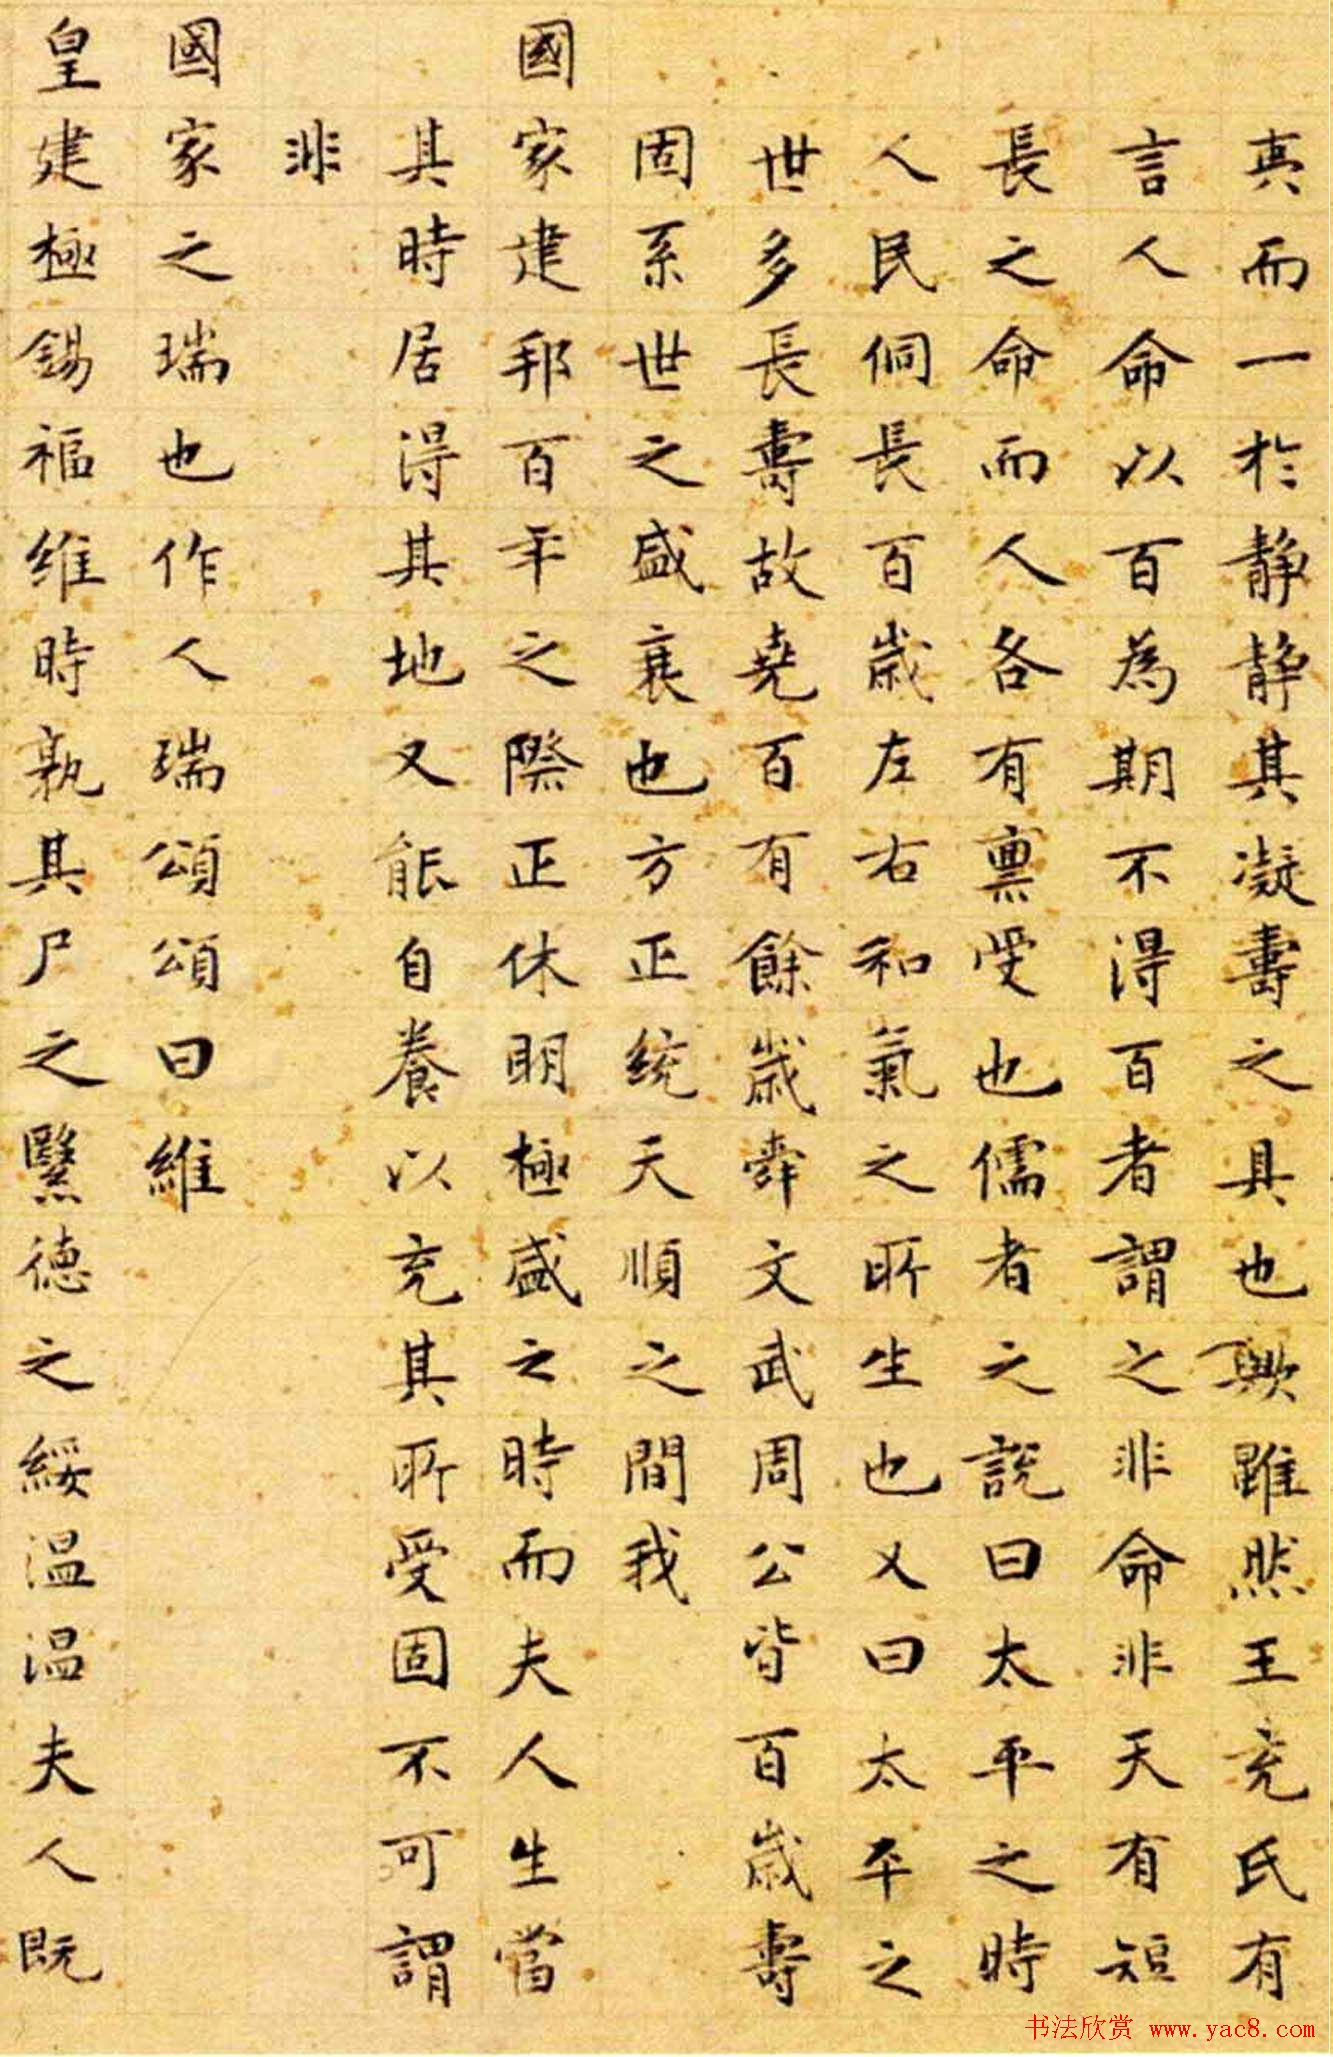 真而一於静静其凝壽之具也歟雖然王充氏有
言人命以百為期不得百者謂之非命非天有短
長之命而人各有禀受也儒者之説曰太平之時
人民侗長百歲左右和氣之所生也又曰太平之
世多長壽故堯百有餘歲舜文武周公皆百歲壽
固系世之盛衰也方正統天順之間我
國家建邦百年之際正休明極盛之時而夫人生當
其時居得其地又能自養以充其所受固不可謂
非
國家之瑞也作人瑞頌頌曰維
皇建極錫福維時孰其尸之繄德之綏温温夫人既
书法欣赏 www.yac8.com